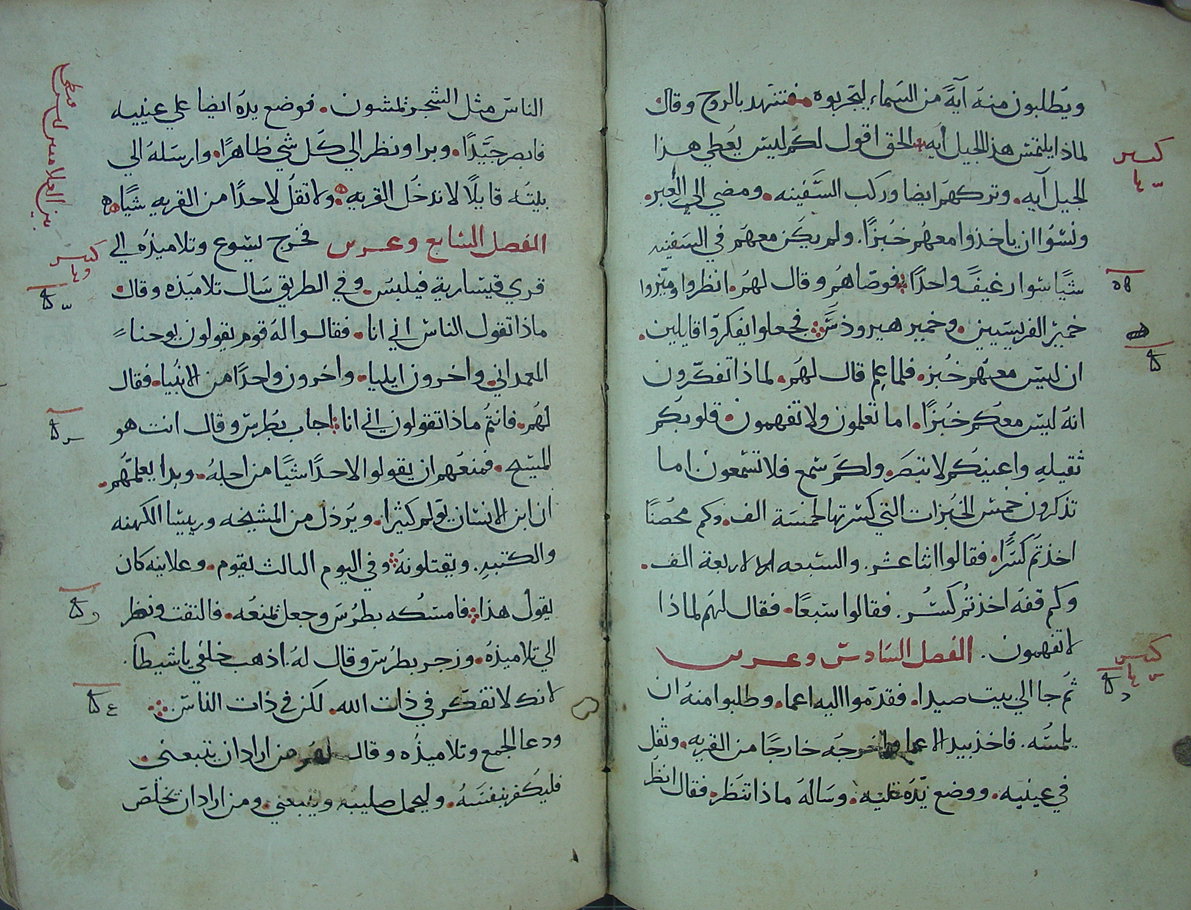 ويطلبون منه آية من السماء ليجربوه فتنهد بالروح وقال
لماذا يلتمس هذا الجيل آيه الحق اقول لكم ليس يعطي هذا
الجيل آيه وتركهم ايضا وركب السفينه ومضي الي العبر
ونسوا ان ياخذوا معهم خبزا ولم يكن معهم في السفينه
شيا سوا رغيف واحدا فوصاهم وقال لهم انظروا وميزوا
خمير الفريسيين وخمير هيروذس فجعلوا يفكروا قايلين
ان ليس معهم خبز فلما علم قال لهم لماذا تفكرون
انه ليس معكم خبزا اما تعلمون ولا تفهمون قلوبكم
ثقيله واعينكم لا تبصر ولكم سمع فلا تسمعون اما
تذكرون خمس الخبزات التي كسرتها لخمسة الف وكم
اخذتم كسرا فقالوا اثنا عشر والسبعه لاربعة الف
وكم قفه اخذتم كسر فقالوا سبعا فقال لهم لماذا
لا تفهمون الفصل السادس وعسرس
ثم جا الي بيت صيدا فقدموا اليه اعما وطلبوا منه ان
يلمسه فاخذ بيد الاعما واخرجه خارجا من القريه وتفل
في عينيه ووضع يده عليه وساله ماذا تنظر فقال انظر
الناس مثل الشجر تمشون فوضع يده ايضا علي عينيه
فابصر جيدا وبرا ونظر الي كل شي ظاهرا وارسله الي
بيته قايلا لا تدخل القريه ولا تقل لاحدا من القريه شيا
الفصل السابع وعسرس فخرج يسوع وتلاميذه الي
قري قيسارية فيلبس وفي الطريق سال تلاميذه وقال
ماذا تقول الناس اني انا فقالوا له قوم يقولون يوحنا
المعمداني واخرون ايليا واخرون واحدا من الانبيا فقال
لهم فانتم ماذا تقولون اني انا اجاب بطرس وقال انت هو
المسيح فمنعهم ان يقولوا لاحدا شيا من اجله وبدا يعلمهم
ان ابن الانسان يولم كثيرا ويرذل من المشيخه وريسا الكهنه
والكتبه ويقتلونه وفي اليوم الثالث يقوم وعلانيه كان
يقول هذا فامسكه بطرس وجعل يمنعه فالتفت ونظر
الي تلاميذه وزجر بطرس وقال له اذهب خلفي يا شيطا
لانك لا تفكر في ذات الله لكن في ذات الناس
ودعا الجمع وتلاميذه وقال لهم من اراد ان يتبعني
فليكفر بنفسه وليحمل صليبه ويتبعني ومن اراد ان يخلص